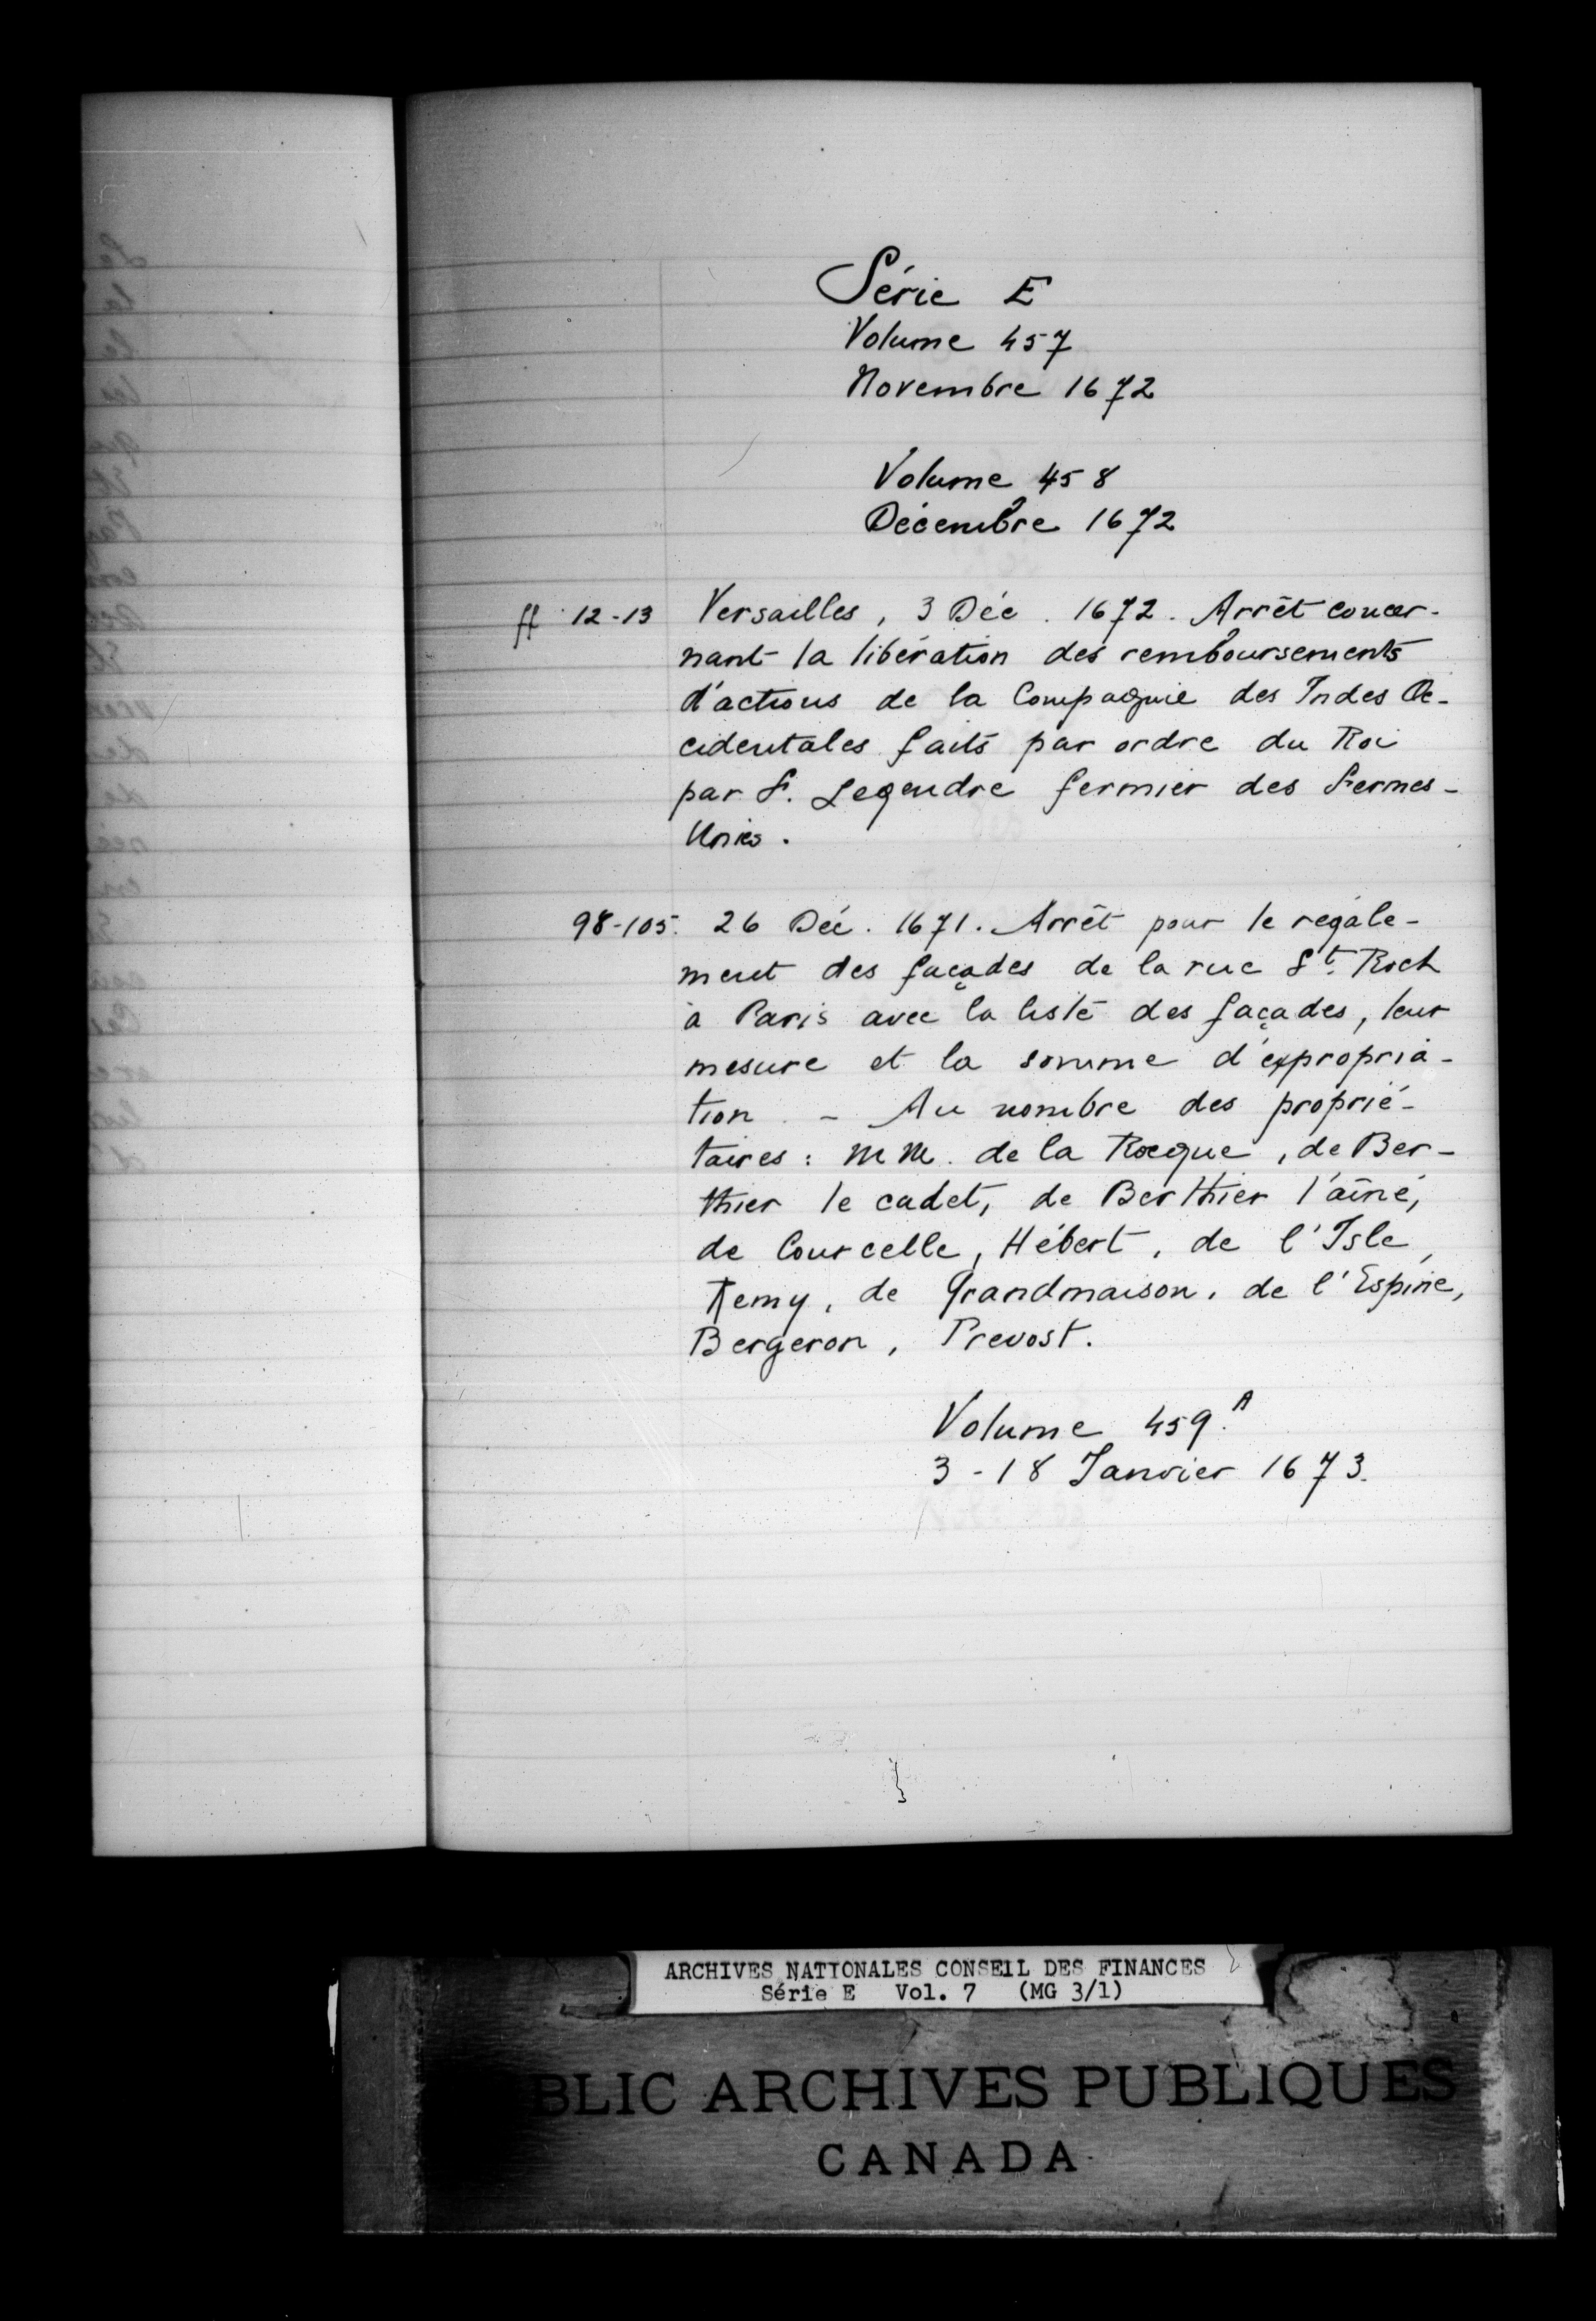 Série E
Volume 457
Novembre 1672
Volume 458
Décembre 1672
ff 12-13 Versailles, 3 Déc. 1672. Arrêt concer-
nant la libération des remboursements
d'actions de la Compagnie des Indes Oc-
cidentales faits par ordre du Roi
par F. Legendre fermier des Fermes-
Unies.
98-105. 26 Déc. 1671. Arrêt pour le régale-
ment des façades de la rue St. Roch
à Paris avec la liste des façades, leur
mesure et la somme d'expropria-
tion. - Au nombre des proprié-
taires : MM. de la Rocque, de Ber-
thier le cadet, de Berthier l'aîné,
de Courcelle, Hébert, de l'Isle,
Remy, de Grandmaison, de l'Espine,
Bergeron, Prevost.
Volume 459.A
3-18 Janvier 1673.
ARCHIVES NATIONALES CONSEIL DES FINANCES
Série E Vol. 7 (MG 3/1)
BLIC ARCHIVES PUBLIQUES
CANADA